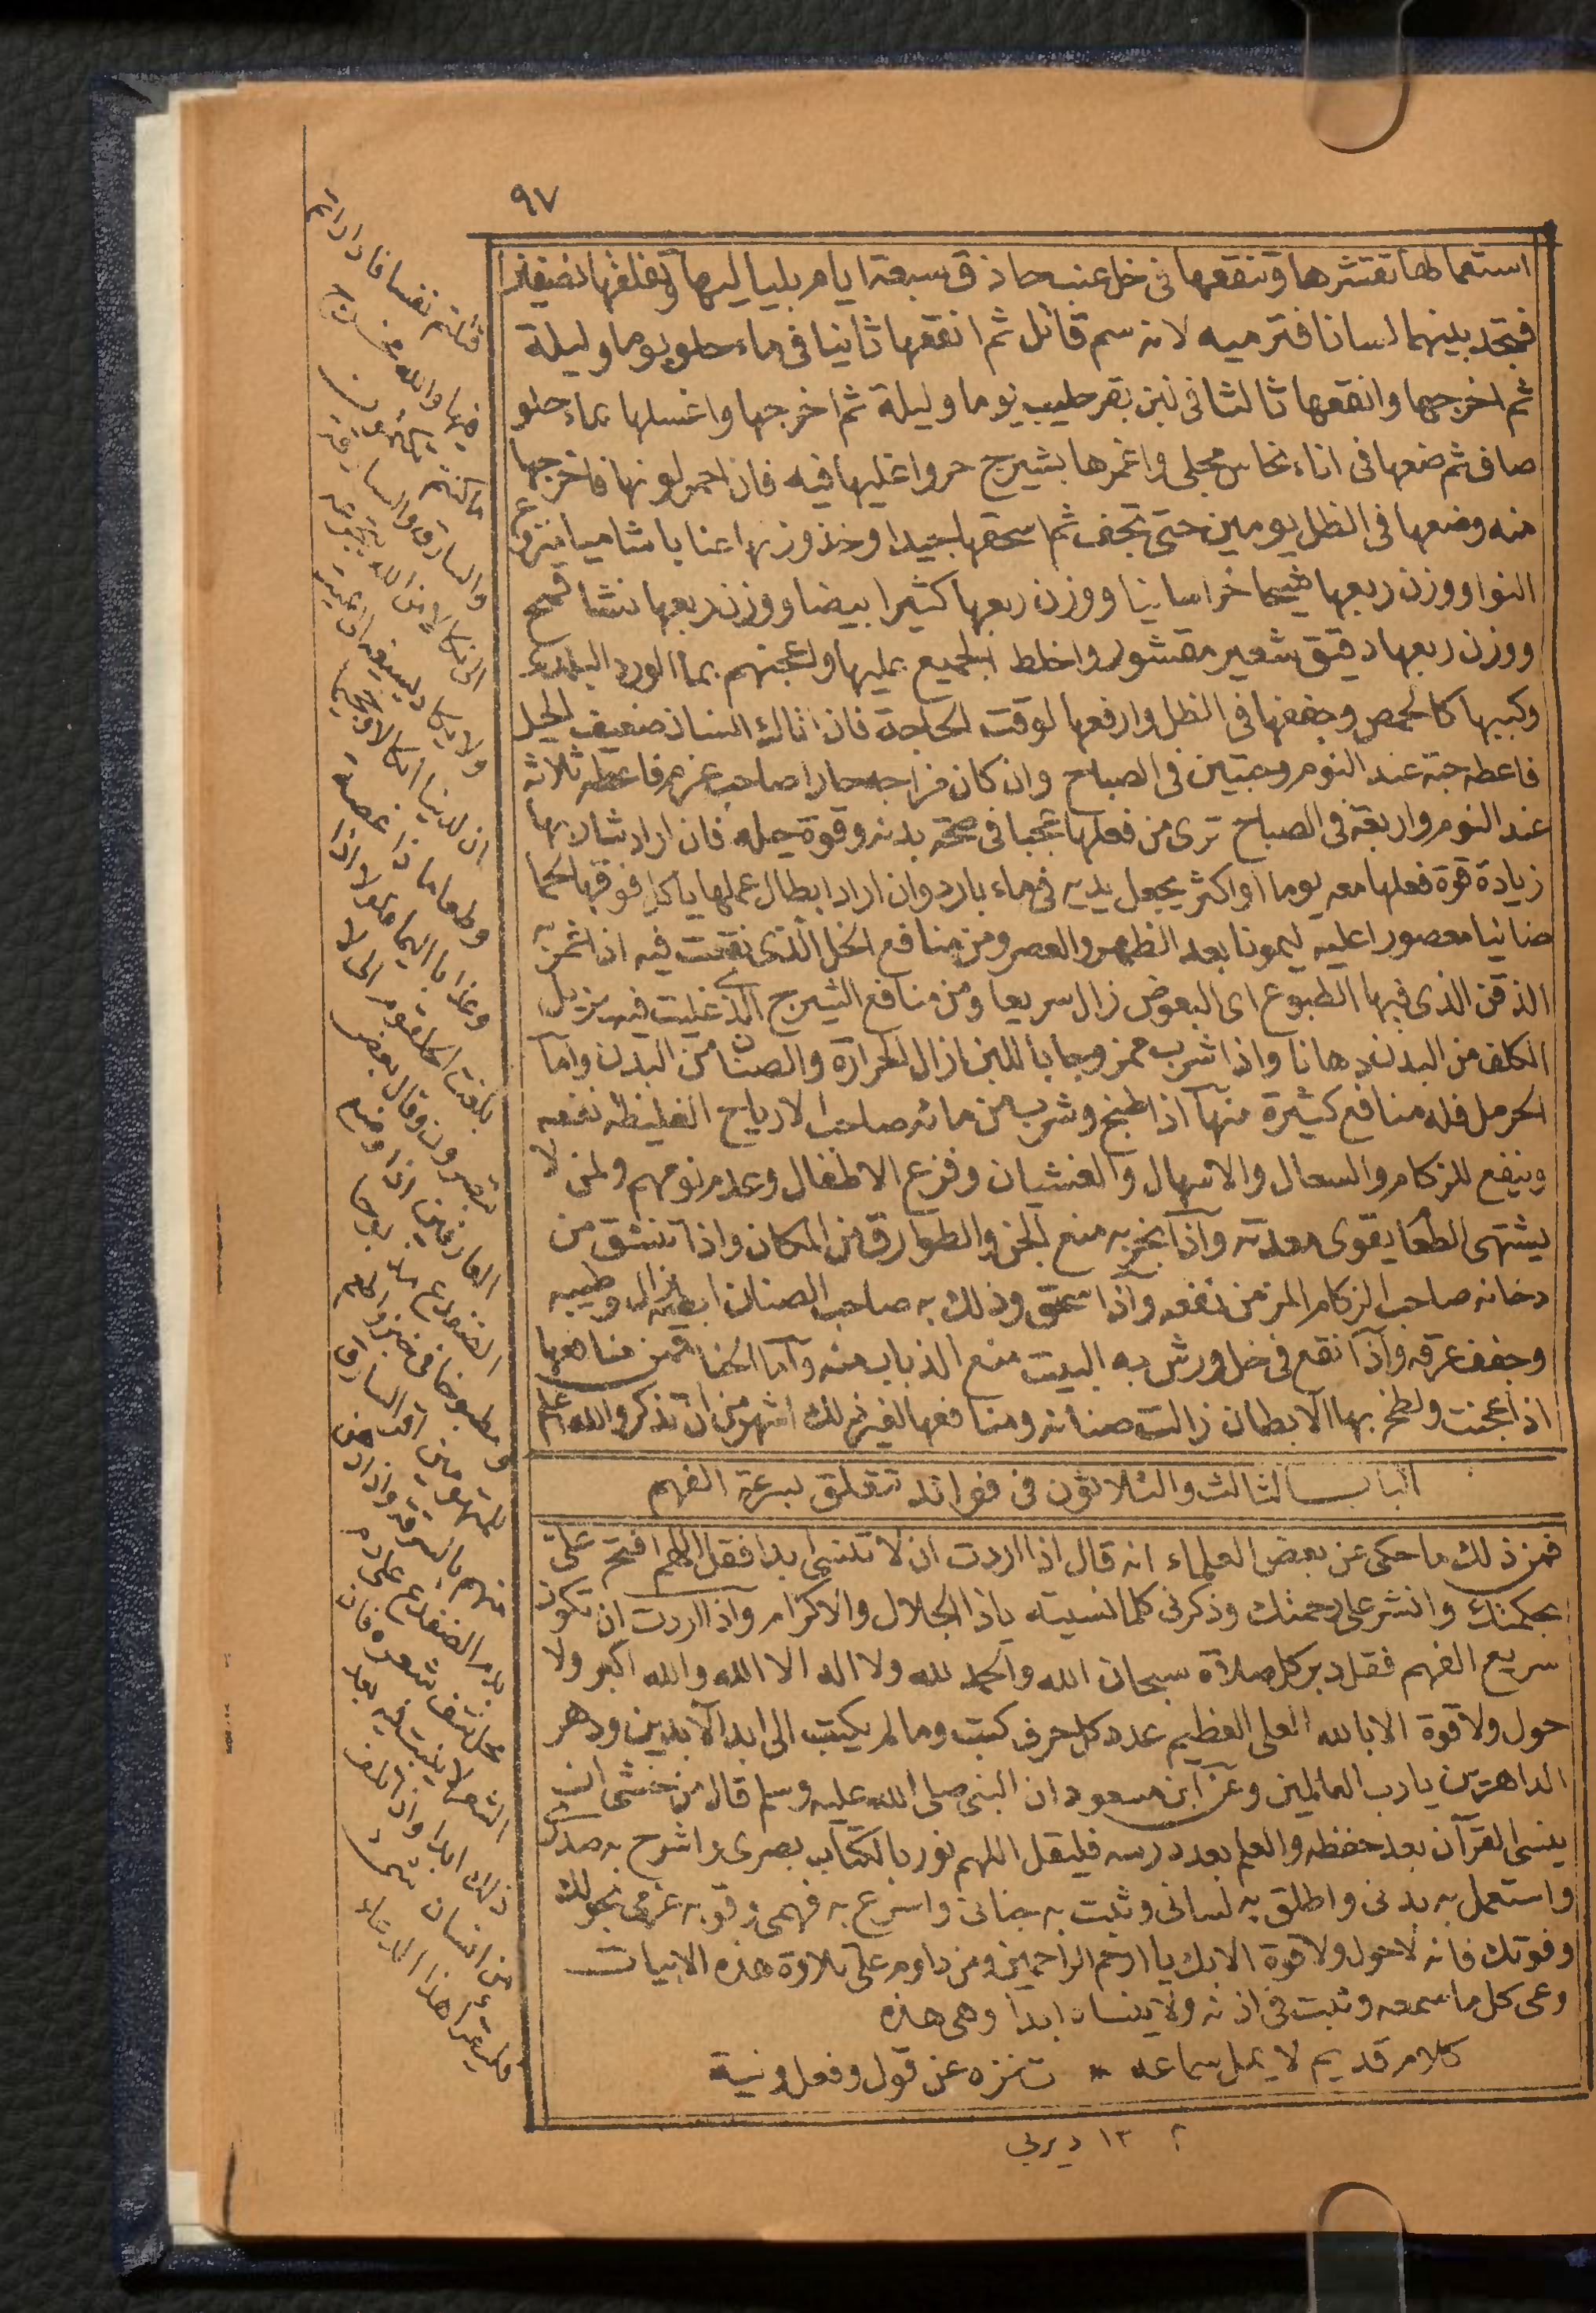 ٩٧
استعمالها تقشرها وتنقعها فى خل عنب حاذق سبعة ايام بلياليها وتفلقها نصفين
فتجد بينهما لسانا فترميه لانه سم قاتل ثم انقعها ثانيا فى ماء حلو يوما وليلة
ثم اخرجها وانقعها ثالثا فى لبن بقر حليب يوما وليلة ثم اخرجها واغسلها بماء حلو
صاف ثم ضعها فى اناء نحاس مجلى واغمرها بشيرج حر واغليها فيه فان احمر لونها فاخرجها
منه وضعها فى الظل يومين حتى تجف ثم اسحقها جيدا وخذ وزنها عنابا شاميا منزوع
النوا ووزن ربعها شيحا خراسانيا ووزن ربعها كثيرا بيضا ووزن ربعها نشا قمح
ووزن ربعها دقيق شعير مقشور واخلط الجميع عليها واعجنهم بماء الورد البلدى
وكببها كالحمص وجففها فى الظل وارفعها لوقت الحاجة فان اتاك انسان ضعيف الحيل
فاعطه حبة عند النوم وحبتين فى الصباح وان كان مزاجه حارا صاحب عزم فاعطه ثلاثة
عند النوم واربعة فى الصباح ترى من فعلها عجبا فى صحة بدنه وقوة حيله فان اراد شاربها
زيادة قوة فعلها معه يوما او اكثر يجعل يديه فى ماء بارد وان اراد ابطال عملها ياكل فوقها لحما
ضانيا معصورا عليه ليمونا بعد الظهر والعصر ومن منافع الخل الذى نقعت فيه اذا غمرت به
الذقن الذى فيها الطبوع اى البعوض زال سريعا ومن منافع الشيرج الذى غليت فيه يزيل
الكلف من البدن دهانا واذا شرب ممزوجا باللبن ازال الحرارة والصنان من البدن واما
الحرمل فله منافع كثيرة منها اذا طبخ وشرب من مائه صاحب الارياح الغليظة نفعه
وينفع للزكام والسعال والاسهال والغثيان وفزع الاطفال وعدم نومهم ولمن لا
يشتهى الطعام يقوى معدته واذا بخر به منع الجن والطوارق من المكان واذا تنشق من
دخانه صاحب الزكام المزمن نفعه واذا سحق ودلك به صاحب الصنان ابطه ازاله وطيبه
وجفف عرقه واذا نقع فى خل ورش به البيت منع الذباب منه واما الحنا فمن منافعها
اذا عجنت ولطخ بها الابطان زالت صنانه ومنافعها لغير ذلك اشهر من ان تذكر والله اعلم
الباب الثالث والثلاثون فى فوائد تتعلق بسرعة الفهم
فمن ذلك ما حكى عن بعض العلماء انه قال اذا اردت ان لا تنسى ابدا فقل اللهم افتح على
بحكمتك وانشر على رحمتك وذكرنى كلما نسيته ياذا الجلال والاكرام واذا اردت ان تكون
سريع الفهم فقل دبر كل صلاة سبحان الله والحمد لله ولا اله الا الله والله اكبر ولا
حول ولا قوة الا بالله العلى العظيم عدد كل حرف كتب وما لم يكتب الى ابد الآبدين ودهر
الداهرين يارب العالمين وعن ابن مسعود ان النبى صلى الله عليه وسلم قال من خشى ان
ينسى القرآن بعد حفظه والعلم بعد درسه فليقل اللهم نور بالكتاب بصرى واشرح به صدرى
واستعمل به بدنى واطلق به لسانى وثبت به جنانى واسرع به فهمى وقو به عزمى بحولك
وقوتك فانه لا حول ولا قوة الا بك يا ارحم الراحمين ومن داوم على تلاوة هذه الابيات
وعى كل ما سمعه وثبت فى اذنه ولا ينساه ابدا وهى هذه
كلام قديم لا يمل سماعه * تنزه عن قول وفعل ونية
١٣ ديربى
قتلتم نفسا فادارأتم
فيها والله مخرج
ما كنتم تكتمون
والسارق والسارقة
ولا يكاد يسيغه
ان لدينا انكالا وجحيما
وطعاما ذا غصة
وعذابا اليما فلولا اذا
بلغت الحلقوم
تبصرون وقال بعض
العارفين اذا
الضفدع
ذلك ابدا وان
من انسان
هذا الدعاء